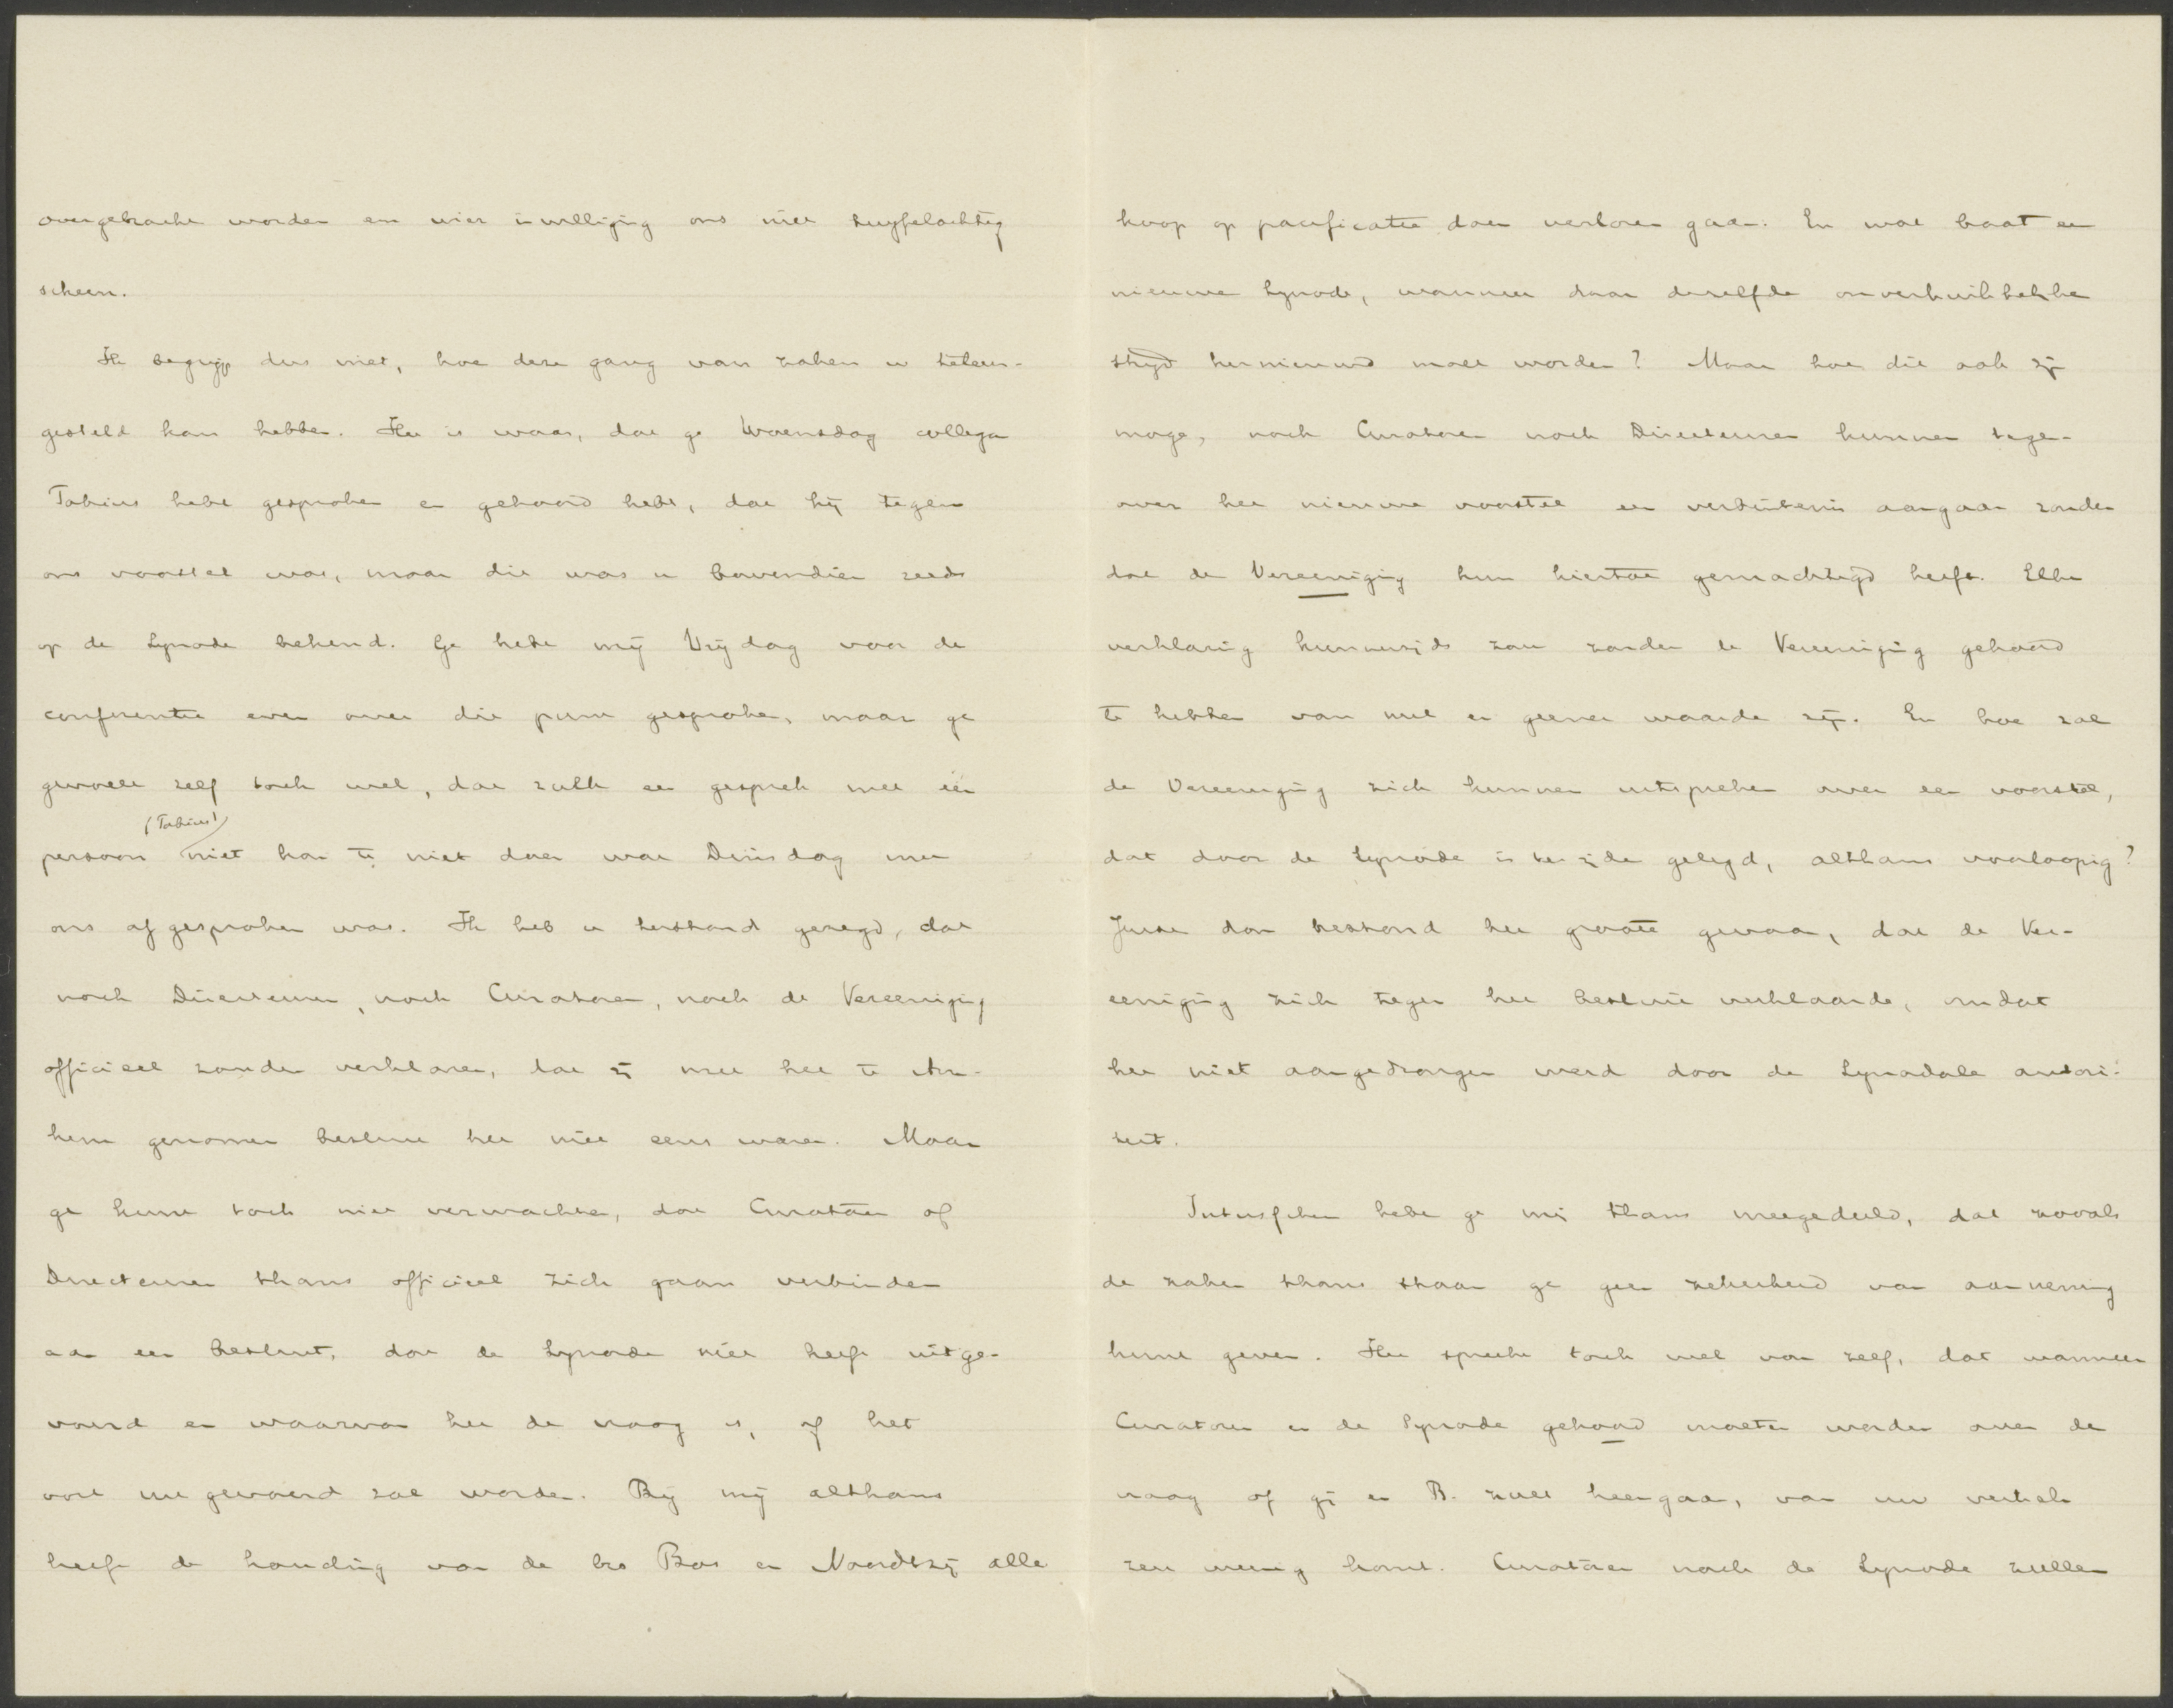 overgebracht worden en wier inwilliging ons niet twijfelachtig
scheen.
Ik begrijp dus niet, hoe deze gang van zaken u teleur-
gesteld kan hebben. Het is waar, dat ge Woensdag collega
Fabius hebt gesproken en gehoord hebt, dat hij tegen
ons voorstel was, maar dit was u bovendien reeds
op de Synode bekend. Ge hebt mij Vrijdag voor de
conferentie even over dit punt gesproken, maar ge
gevoelt zelf toch wel, dat zulk een gesprek met één
(Fabius)
persoon niet kan te niet doen wat Dinsdag met
ons afgesproken was. Ik heb u terstond gezegd, dat
noch Directeuren, noch Curatoren, noch de Vereeniging
officieel zouden verklaren, dat zij met het te Arn-
hem genomen besluit het niet eens waren. Maar
ge kunt toch niet verwachten, dat Curatoren of
Directeuren thans officieel zich gaan verbinden
aan een besluit, dat de Synode niet heeft uitge-
voerd en waarvan het de vraag is, of het
ooit uitgevoerd zal worden. Bij mij althans
heeft de houding van de brs Bos en Noordtzij alle
hoop op pacificatie doen verloren gaan. En wat baat een
nieuwe Synode, wanneer daar dezelfde onverkwikkelijke
strijd hernieuwd moet worden? Maar hoe dit ook zij
moge, noch Curatoren noch Directeuren kunnen tegen-
over het nieuwe voorstel een verbintenis aangaan zonder
dat de Vereeniging hun hiertoe gemachtigd heeft. Elke
verklaring hunnerzijds zou zonder de Vereeniging gehoord
te hebben van nul en geener waarde zijn. En hoe zal
de Vereeniging zich kunnen uitspreken over een voorstel,
dat door de Synode is ter zijde gelegd, althans voorloopig?
Juist dan bestond het groote gevaar, dat de Ver-
eeniging zich tegen het besluit verklaarde, omdat
het niet aangedrongen werd door de Synodale autori-
teit.
Intusschen hebt ge mij thans meegedeeld, dat zooals
de zaken thans staan ge geen zekerheid van aanneming
kunt geven. Het spreekt toch wel van zelf, dat wanneer
Curatoren en de Synode gehoord moeten worden over de
vraag of gij en B. zult heengaan, van uw vertrek
zeer weinig komt. Curatoren noch de Synode zullen